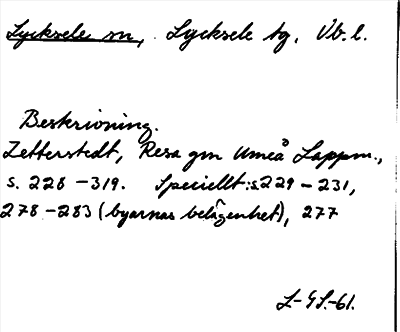 Lycksele sn, Lycksele tg, Vb. l.
Beskrivning.
Zetterstedt, Resa gm Umeå Lappm.,
s. 228-319. Speciellt: s. 229-231,
278-283 (byarnas belägenhet), 277
L-GS.-61.